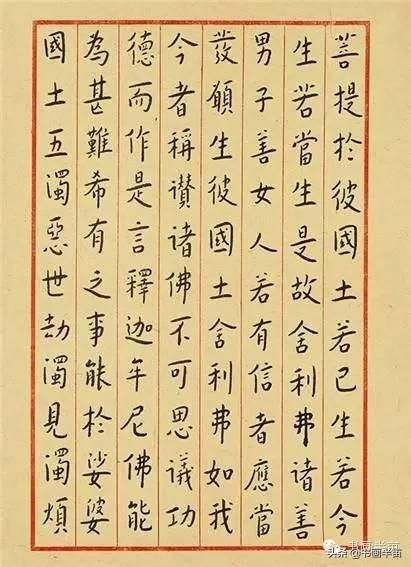 菩提於彼國土若已生若今
生若當生是故舍利弗諸善
男子善女人若有信者應當
發願生彼國土舍利弗如我
今者稱讚諸佛不可思議功
德而作是言釋迦牟尼佛能
為甚難希有之事能於娑婆
國土五濁惡世劫濁見濁煩
书画半亩
头条 @书画半亩